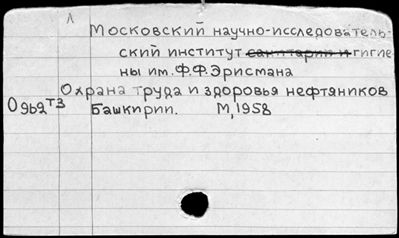 Л
Московский научно-исследователь-
ский институт санитарии и гигие
ны им. Ф.Ф. Эрисмана
Охрана труда и здоровья нефтяников
О9б2т3 Башкирии. М, 1958